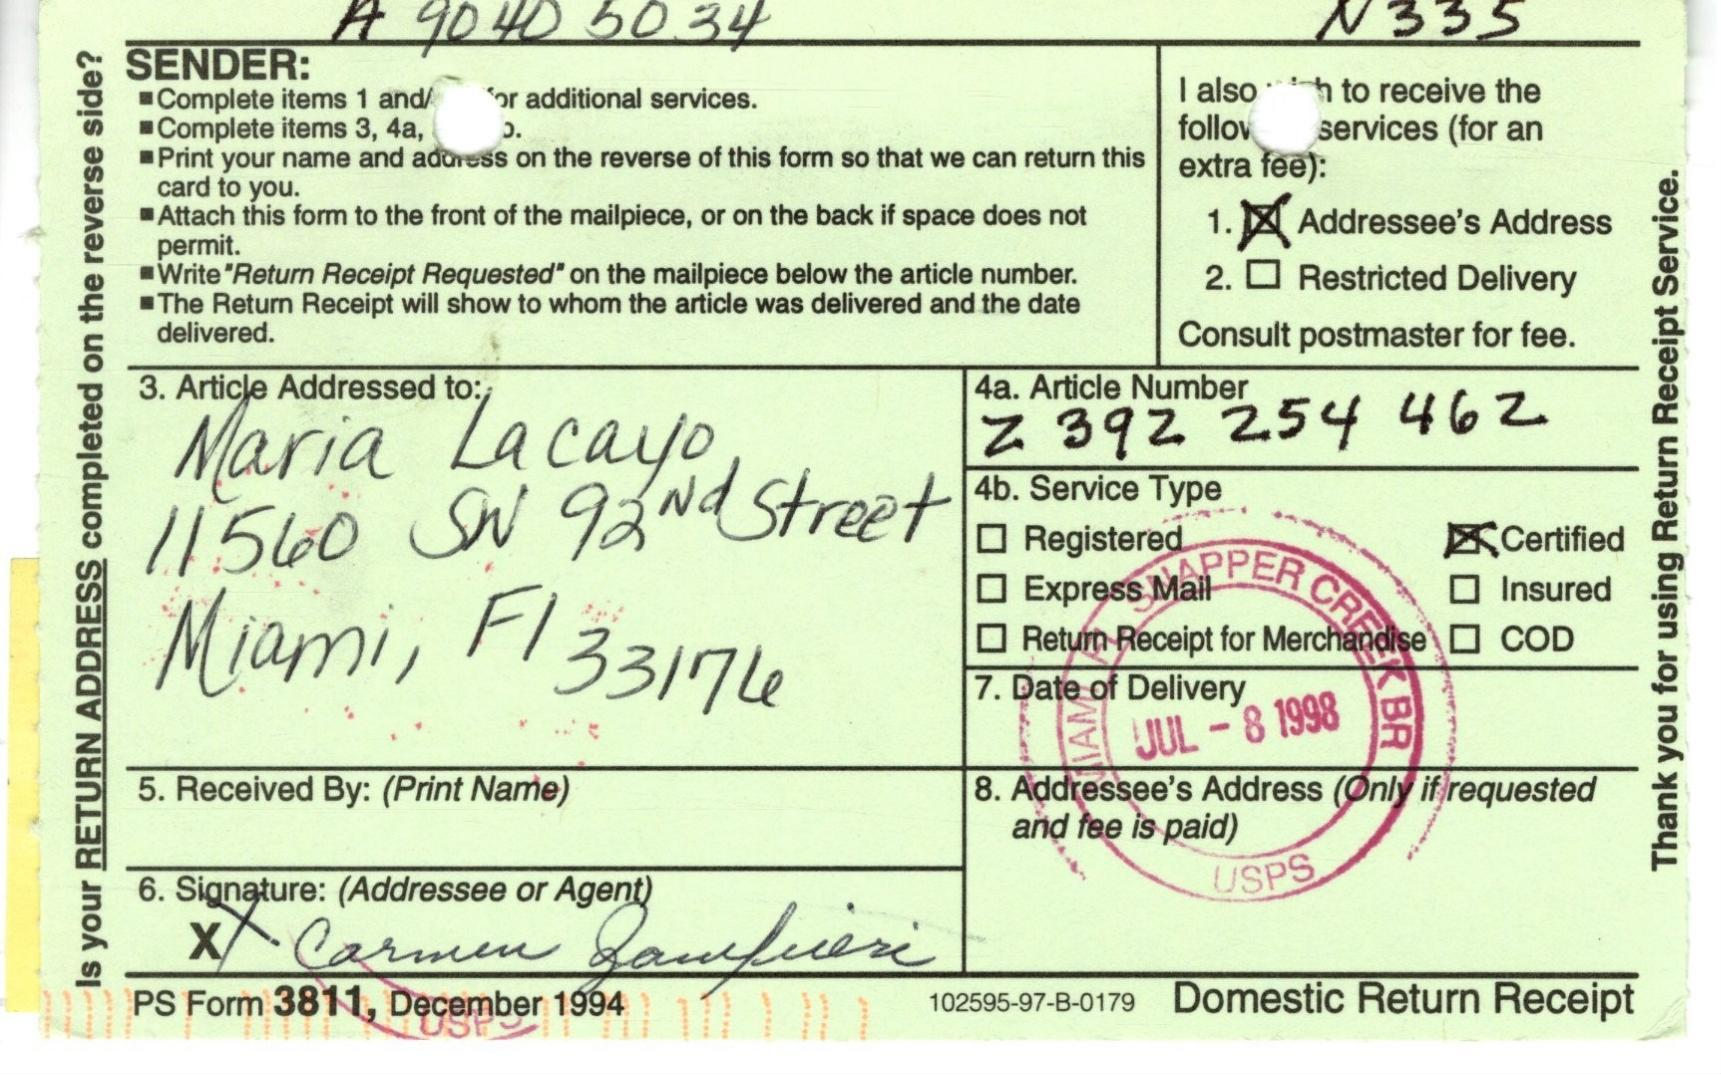 A 9040 50 34 N335
Is your RETURN ADDRESS completed on the reverse side?
SENDER:
■ Complete items 1 and/ for additional services.
■ Complete items 3, 4a,
■ Print your name and address on the reverse of this form so that we can return this
card to you.
■ Attach this form to the front of the mailpiece, or on the back if space does not
permit.
■ Write "Return Receipt Requested" on the mailpiece below the article number.
■ The Return Receipt will show to whom the article was delivered and the date
delivered.
I also wish to receive the
follow services (for an
extra fee):
1. Addressee's Address
2. Restricted Delivery
Consult postmaster for fee.
3. Article Addressed to:
Maria Lacayo
11560 SW 92nd Street
Miami, Fl 33176
4a. Article Number
Z 392 254 462
4b. Service Type
Registered Certified
Express Mail Insured
Return Receipt for Merchandise COD
7. Date of Delivery
MIAMI FL SNAPPER CREEK BR
JUL - 8 1998
USPS
5. Received By: (Print Name)
8. Addressee's Address (Only if requested
and fee is paid)
6. Signature: (Addressee or Agent)
X X Carmen
PS Form 3811, December 1994 102595-97-B-0179 Domestic Return Receipt
USPS
Thank you for using Return Receipt Service.